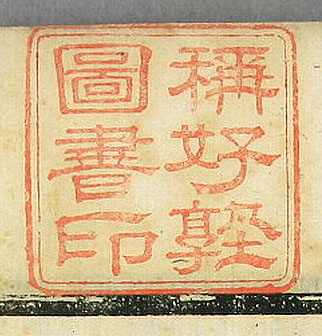 稱好塾
圖書印